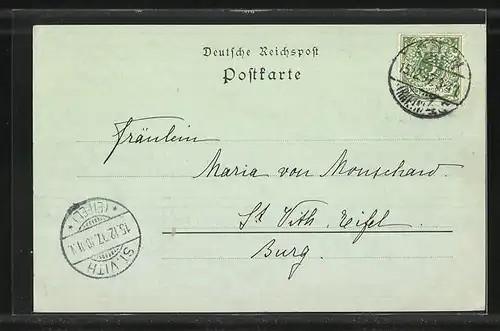 Deutsche Reichspost
Postkarte
Fräulein
Maria von Monschaw.
St Vith. Eifel
Burg.
ST. VITH
15.12.97. 10-11.V.
* (EIFEL) *